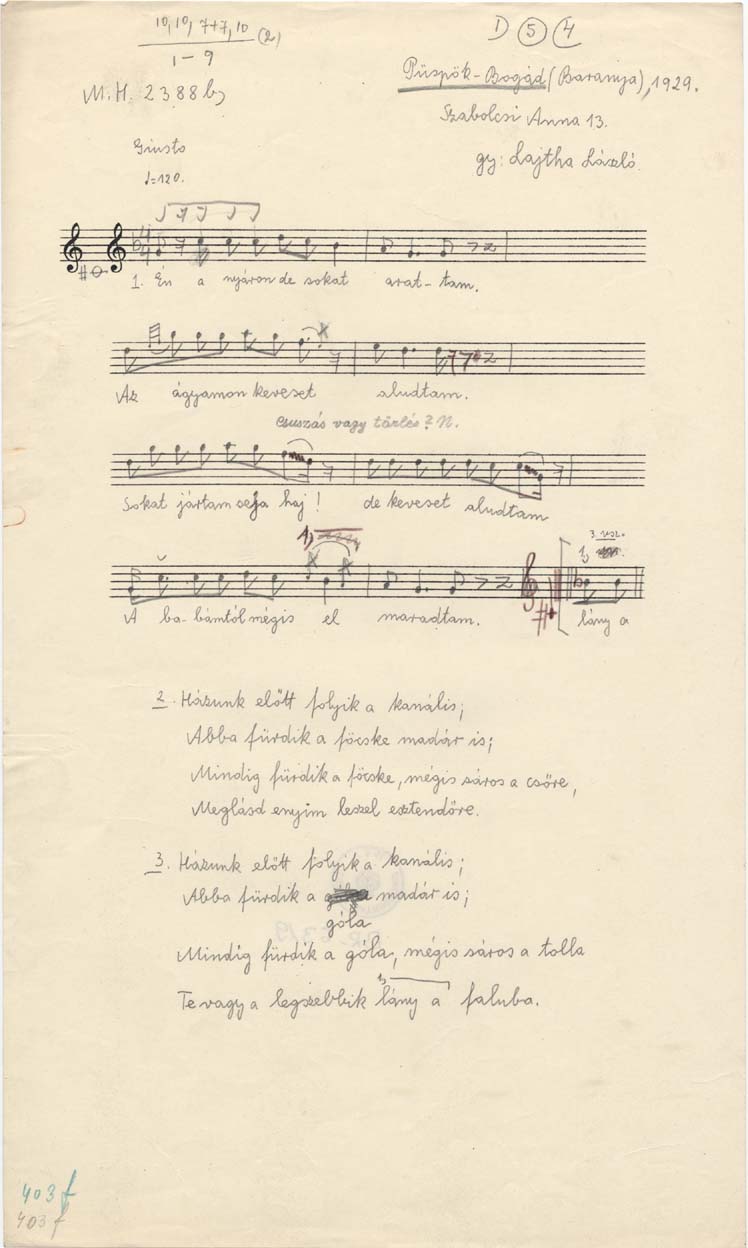 10, 10, 7+7, 10 (2)
1 – 9
D 5 4
M.H. 2388 b)
Püspök-Bogád (Baranya), 1929.
Szabolcsi Anna 13.
gy: Lajtha László.
Giusto
♩=120.
1. Én a nyáron de sokat arat-tam.
Az ágyamon keveset aludtam.
Csuszás vagy törlés? N.
Sokat jártam haj! de keveset aludtam
1,
3. vsz.
1,
A ba-bámtól mégis el maradtam. lány a
2. Házunk előtt folyik a kanális;
Abba fürdik a föcske madár is;
Mindig fürdik a föcske, mégis sáros a csőre,
Meglásd enyim leszel esztendőre.
3. Házunk előtt folyik a kanális;
Abba fürdik a madár is;
góla
Mindig fürdik a góla, mégis sáros a tolla
1,
Te vagy a legszebbik lány a faluba.
403 f
403 f